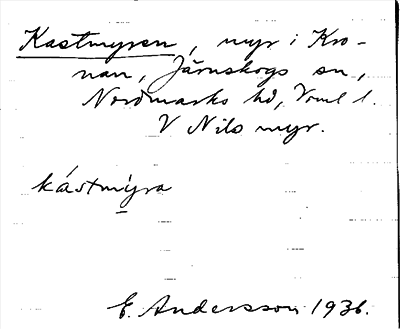 Kastmyren, myr i Kro-
nan, Järnskogs sn,
Nordmarks hd, Vrml l.
V Nils myr.
kástmy̱ra
E. Andersson 1936.